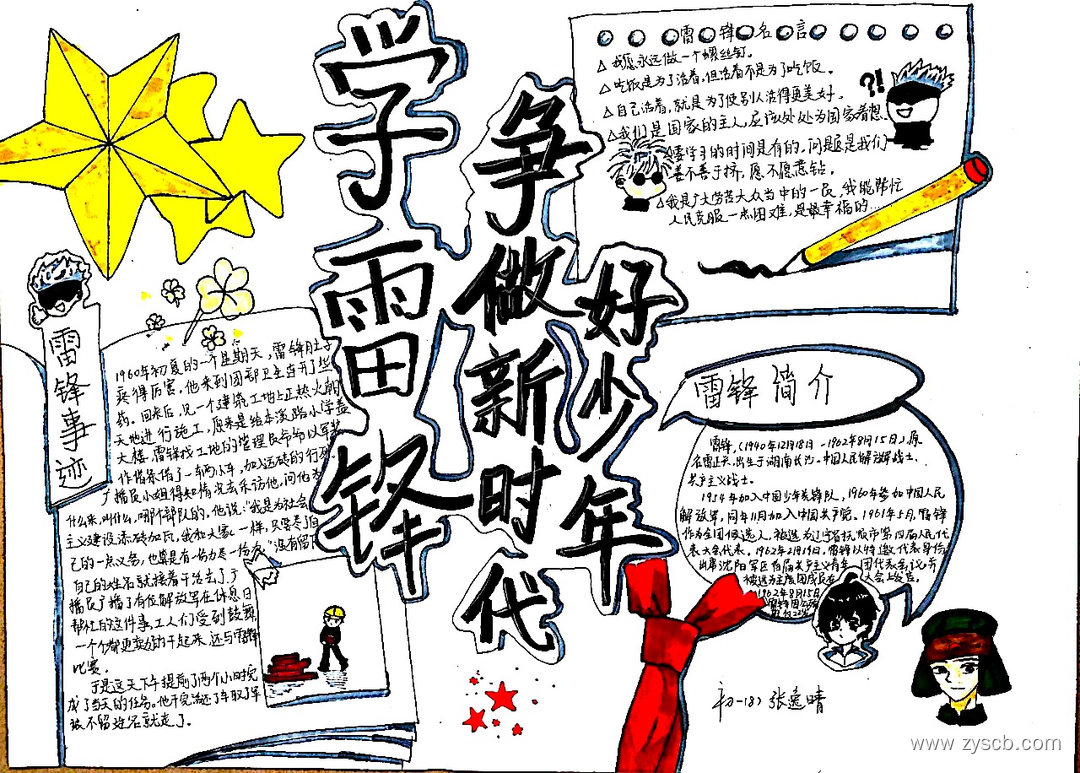 学雷锋
争做新时代
好少年
雷锋名言
△我愿永远做一个螺丝钉。
△吃饭是为了活着，但活着不是为了吃饭。
△自己活着，就是为了使别人活得更美好。
△我们是国家的主人，应该处处为国家着想。
要学习的时间是有的，问题是我们
善不善于挤，愿不愿意钻
△我是广大劳苦大众当中的一员，我能帮忙
人民克服一点困难，是最幸福的...
?!
雷锋事迹
1960年初夏的一个星期天，雷锋肚子
疼得厉害，他来到团部卫生连开了些
药。回来后，见一个建筑工地上正热火朝
天地进行施工，原来是给本溪路小学盖
大楼，雷锋
作服
广播员小姐得知情况去采访他，问他
什么来，叫什么，哪个部队的，他说："我是为社会
主义建设添砖加瓦，我和大家一样，只要尽了自
己的一点义务，也算是有一份力尽一份光"没有留下
自己的姓名就接着干活去了，广
播员广播了有位解放军在休息日
帮忙的这件事，工人们受到鼓舞，
一个个都更卖劲的干起来，还与雷锋
比赛。
于是这天下午提前了两个小时完
成了当天的任务。
不留姓名就走了。
雷锋简介
雷锋，（1940年12月18日-1962年8月15日），原
名雷正兴，出生于湖南长沙。中国人民解放军战士、
共产主义战士。
1954年加入中国少年先锋队，1960年参加中国人民
解放军，同年11月加入中国共产党。1961年5月，雷锋
作为全团候选人，被选为辽宁省抚顺市第四届人民代
表大会代表。1962年2月19日，雷锋以特邀代表身份
出席沈阳军区首届共产主义青年团代表会议，并
被选为主席团成员在大会上发言。
1962年8月15日
初一(8) 张逸晴
www.zyscb.com